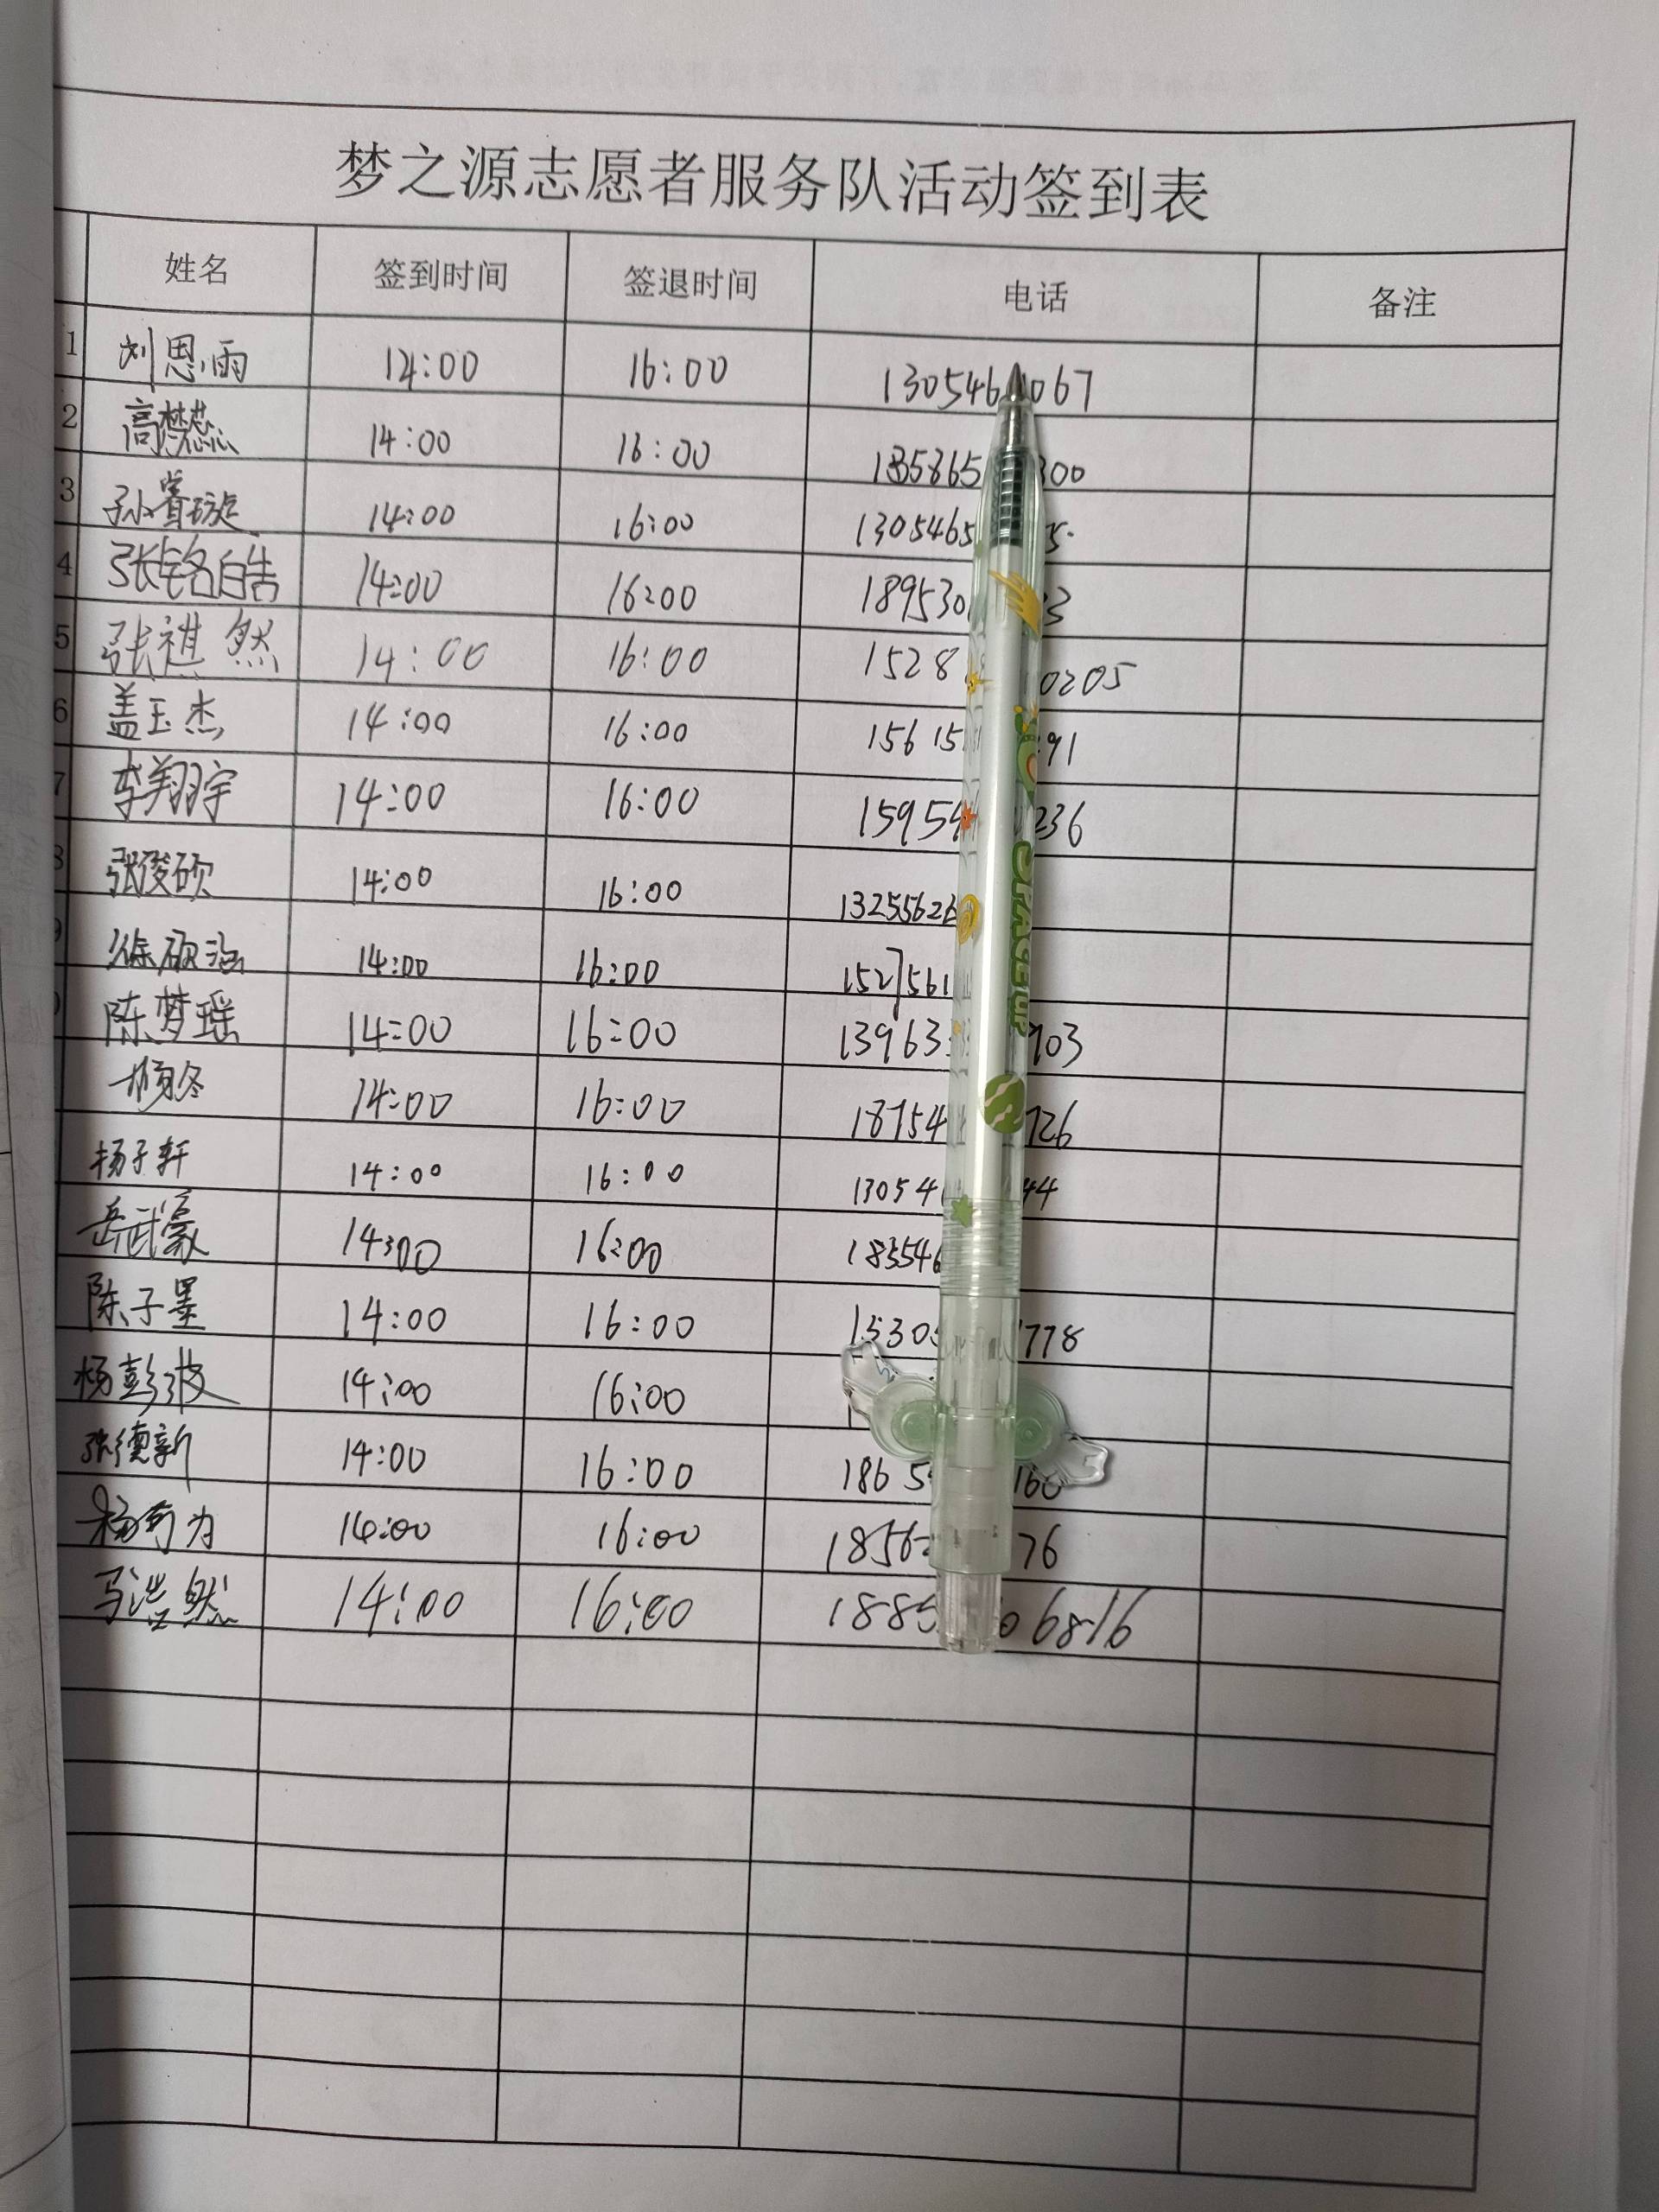 梦之源志愿者服务队活动签到表
姓名 签到时间 签退时间 电话 备注
1 刘思雨 14:00 16:00 130546 067
2 高懋 14:00 16:00 185865 300
3 孙睿璇 14:00 16:00 1305465 5
4 张铭皓 14:00 16:00 189530 3
5 张祺然 14:00 16:00 1528 0205
6 盖玉杰 14:00 16:00 15615 91
7 李翔宇 14:00 16:00 1595 236
张俊硕 14:00 16:00 1325562
徐硕 14:00 16:00 1527561
陈梦瑶 14:00 16:00 13963 903
杨冬 14:00 16:00 18754 726
杨子轩 14:00 16:00 13054 44
岳武豪 14:00 16:00 183546
陈子墨 14:00 16:00 1530 778
杨彭波 14:00 16:00
张德新 14:00 16:00 1865 160
杨有为 14:00 16:00 1856 76
马浩然 14:00 16:00 1885 06816
SNAGGEUP